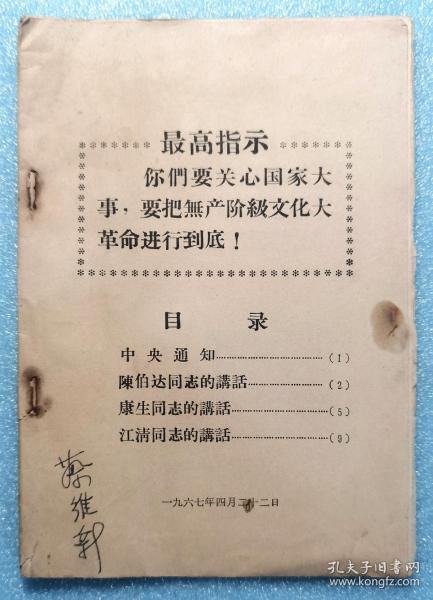 最高指示
你們要关心国家大
事，要把無产阶級文化大
革命进行到底！
目 录
中央通知……………………………（1）
陳伯达同志的講話……………………（2）
康生同志的講話………………………（5）
江清同志的講話………………………（9）
一九六七年四月二十二日
維新
孔夫子旧书网
www.kongfz.com